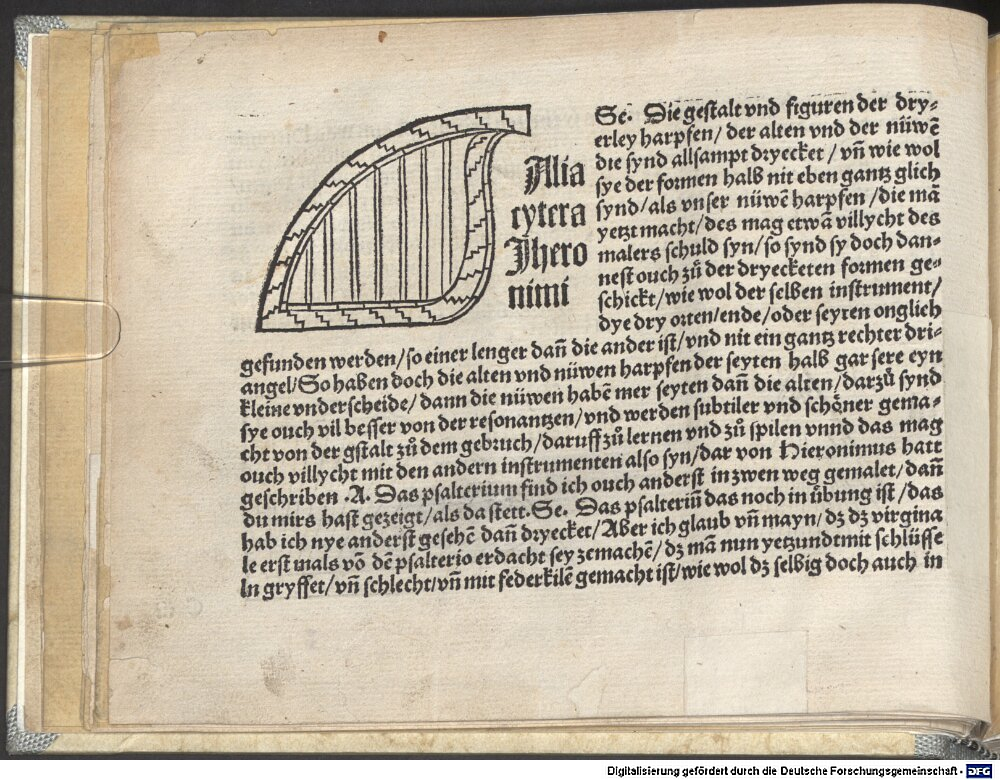 Alia
cytera
Jhero
nimi
Se. Die gestalt vnd figuren der dry⸗
erley harpfen/ der alten vnd der nüwē
die synd allsampt dryecket / vn̄ wie wol
sye der formen halb nit eben gantz glich
synd/als vnser nüwē harpfen /die mā
yetzt macht/des mag etwā villycht des
malers schuld syn/so synd sy doch dan⸗
nest ouch zů der dryecketen formen ge⸗
schickt/wie wol der selben instrument/
dye dry orten/ende/oder seyten onglich
gefunden werden/so einer lenger dan̄ die ander ist/vnd nit ein gantz rechter dri⸗
angel/So haben doch die alten vnd nüwen harpfen der seyten halb gar sere eyn
kleine vnderscheide/dann die nüwen habē mer seyten dan̄ die alten/darzů synd
sye ouch vil besser von der resonantzen/vnd werden subtiler vnd schöner gema⸗
cht von der gstalt zů dem gebruch/daruff zů lernen vnd zů spilen vnnd das mag
ouch villycht mit den andern instrumenten also syn/dar von Hieronimus hatt
geschriben .A. Das psalterium find ich ouch anderst in zwen weg gemalet/dan̄
du mirs hast gezeigt/als da stett.Se. Das psalteriū das noch in übung ist /das
hab ich nye anderst gesehē dan̄ dryecket/Aber ich glaub vn̄ mayn/dz dz virgina
le erst mals vō dē psalterio erdacht sey zemachē/dz mā nun yetzundt mit schlüsse
ln gryffet/vn̄ schlecht/vn̄ mit federkilē gemacht ist/wie wol dz selbig doch auch in
Digitalisierung gefördert durch die Deutsche Forschungsgemeinschaft - DFG